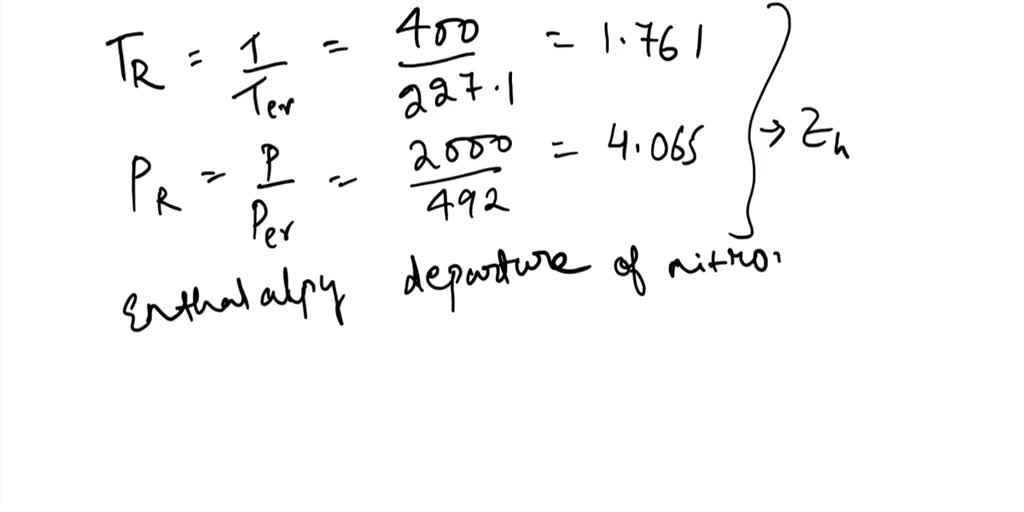 T_R = T/T_cr = 400/227.1 = 1.761
P_R = P/P_cr = 2000/492 = 4.065
} → Z_h
Enthalalpy departure of nitro